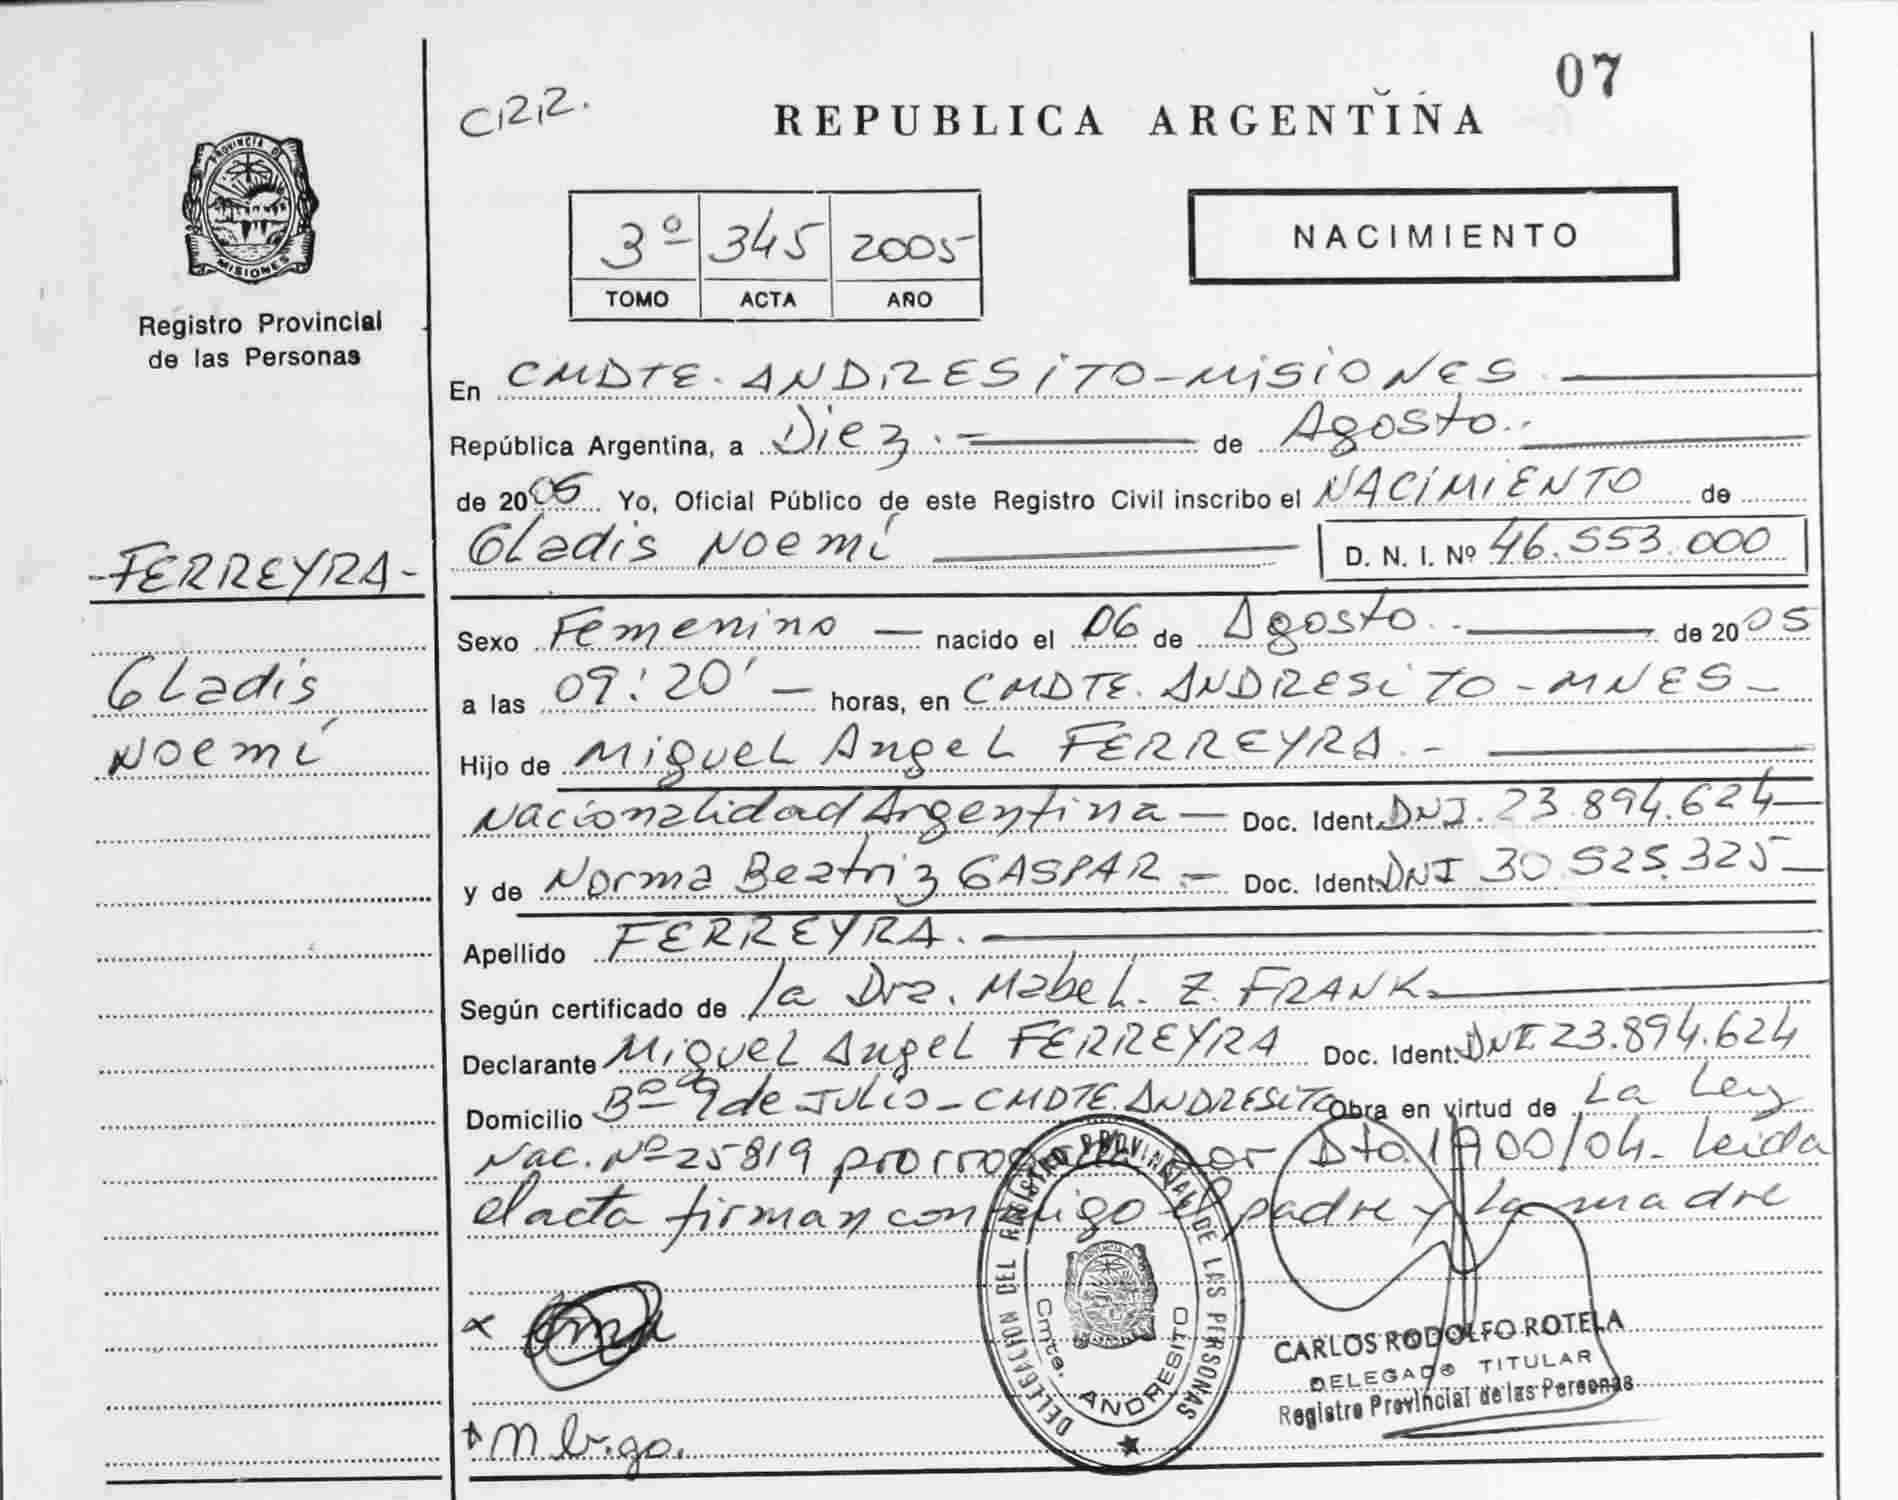 07
C,2,2.
REPUBLICA ARGENTINA
PROVINCIA DE
MISIONES
Registro Provincial
de las Personas
3º 345 2005
TOMO ACTA AÑO
NACIMIENTO
En CMDTE. ANDRESITO-MISIONES.
República Argentina, a Diez.- de Agosto..
de 2005 Yo, Oficial Público de este Registro Civil inscribo el NACIMIENTO de
-FERREYRA- Gladis Noemí D. N. I. Nº 46.553.000
Sexo Femenino — nacido el 06 de Agosto.. de 2005
Gladis a las 09:20' — horas, en CMDTE. ANDRESITO - MNES -
Noemí Hijo de Miguel Angel FERREYRA. -
Nacionalidad Argentina — Doc. Ident. DNI. 23.894.624
y de Norma Beatriz GASPAR.- Doc. Ident. DNI 30.525.325
Apellido FERREYRA.
Según certificado de la Dra. Mabel. Z. FRANK.
Declarante Miguel Angel FERREYRA Doc. Ident. DNI 23.894.624
Domicilio Bº 9 de JULIO - CMDTE. ANDRESITO Obra en virtud de La Ley
Nac. Nº 25819 por Dto. 1900/04. Leida
el acta firman conmigo el padre y la madre
DELEGACION DEL REGISTRO PROVINCIAL DE LAS PERSONAS
Cmte. ANDRESITO
CARLOS RODOLFO ROTELA
DELEGADO TITULAR
Registro Provincial de las Personas